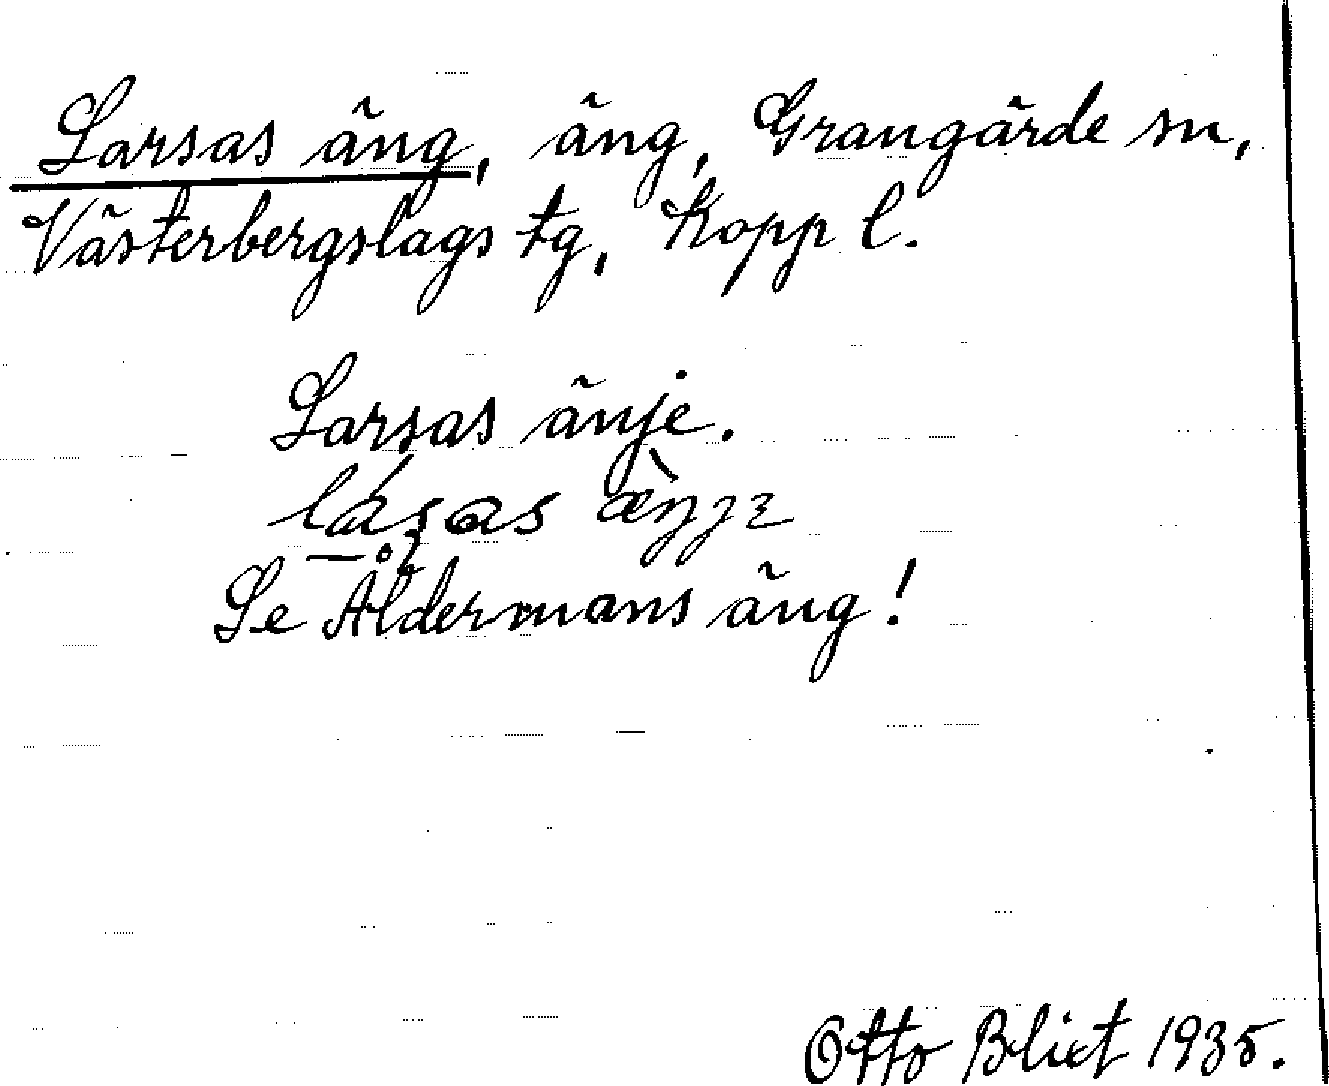 Larsas äng, äng, Grangärde sn,
Västerbergslags tg, Kopp l.
Larsas änje.
Se Åldermans äng!
Otto Blixt 1935.